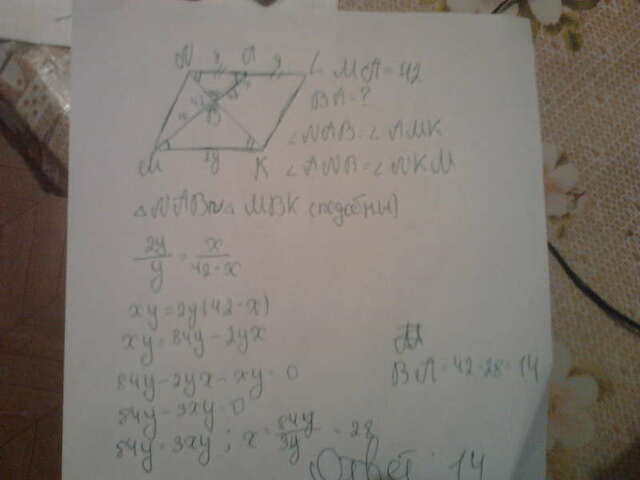 N y A y L MA = 42
BA = ?
∠NAB = ∠AMK
M 2y K ∠ANB = ∠NKM
△NAB ~ △MBK (подобны)
2y/y = x/(42-x)
xy = 2y(42-x)
xy = 84y - 2yx
84y - 2yx - xy = 0
BA = 42-28 = 14
84y - 3xy = 0
84y = 3xy ; x = 84y/3y = 28
Ответ: 14